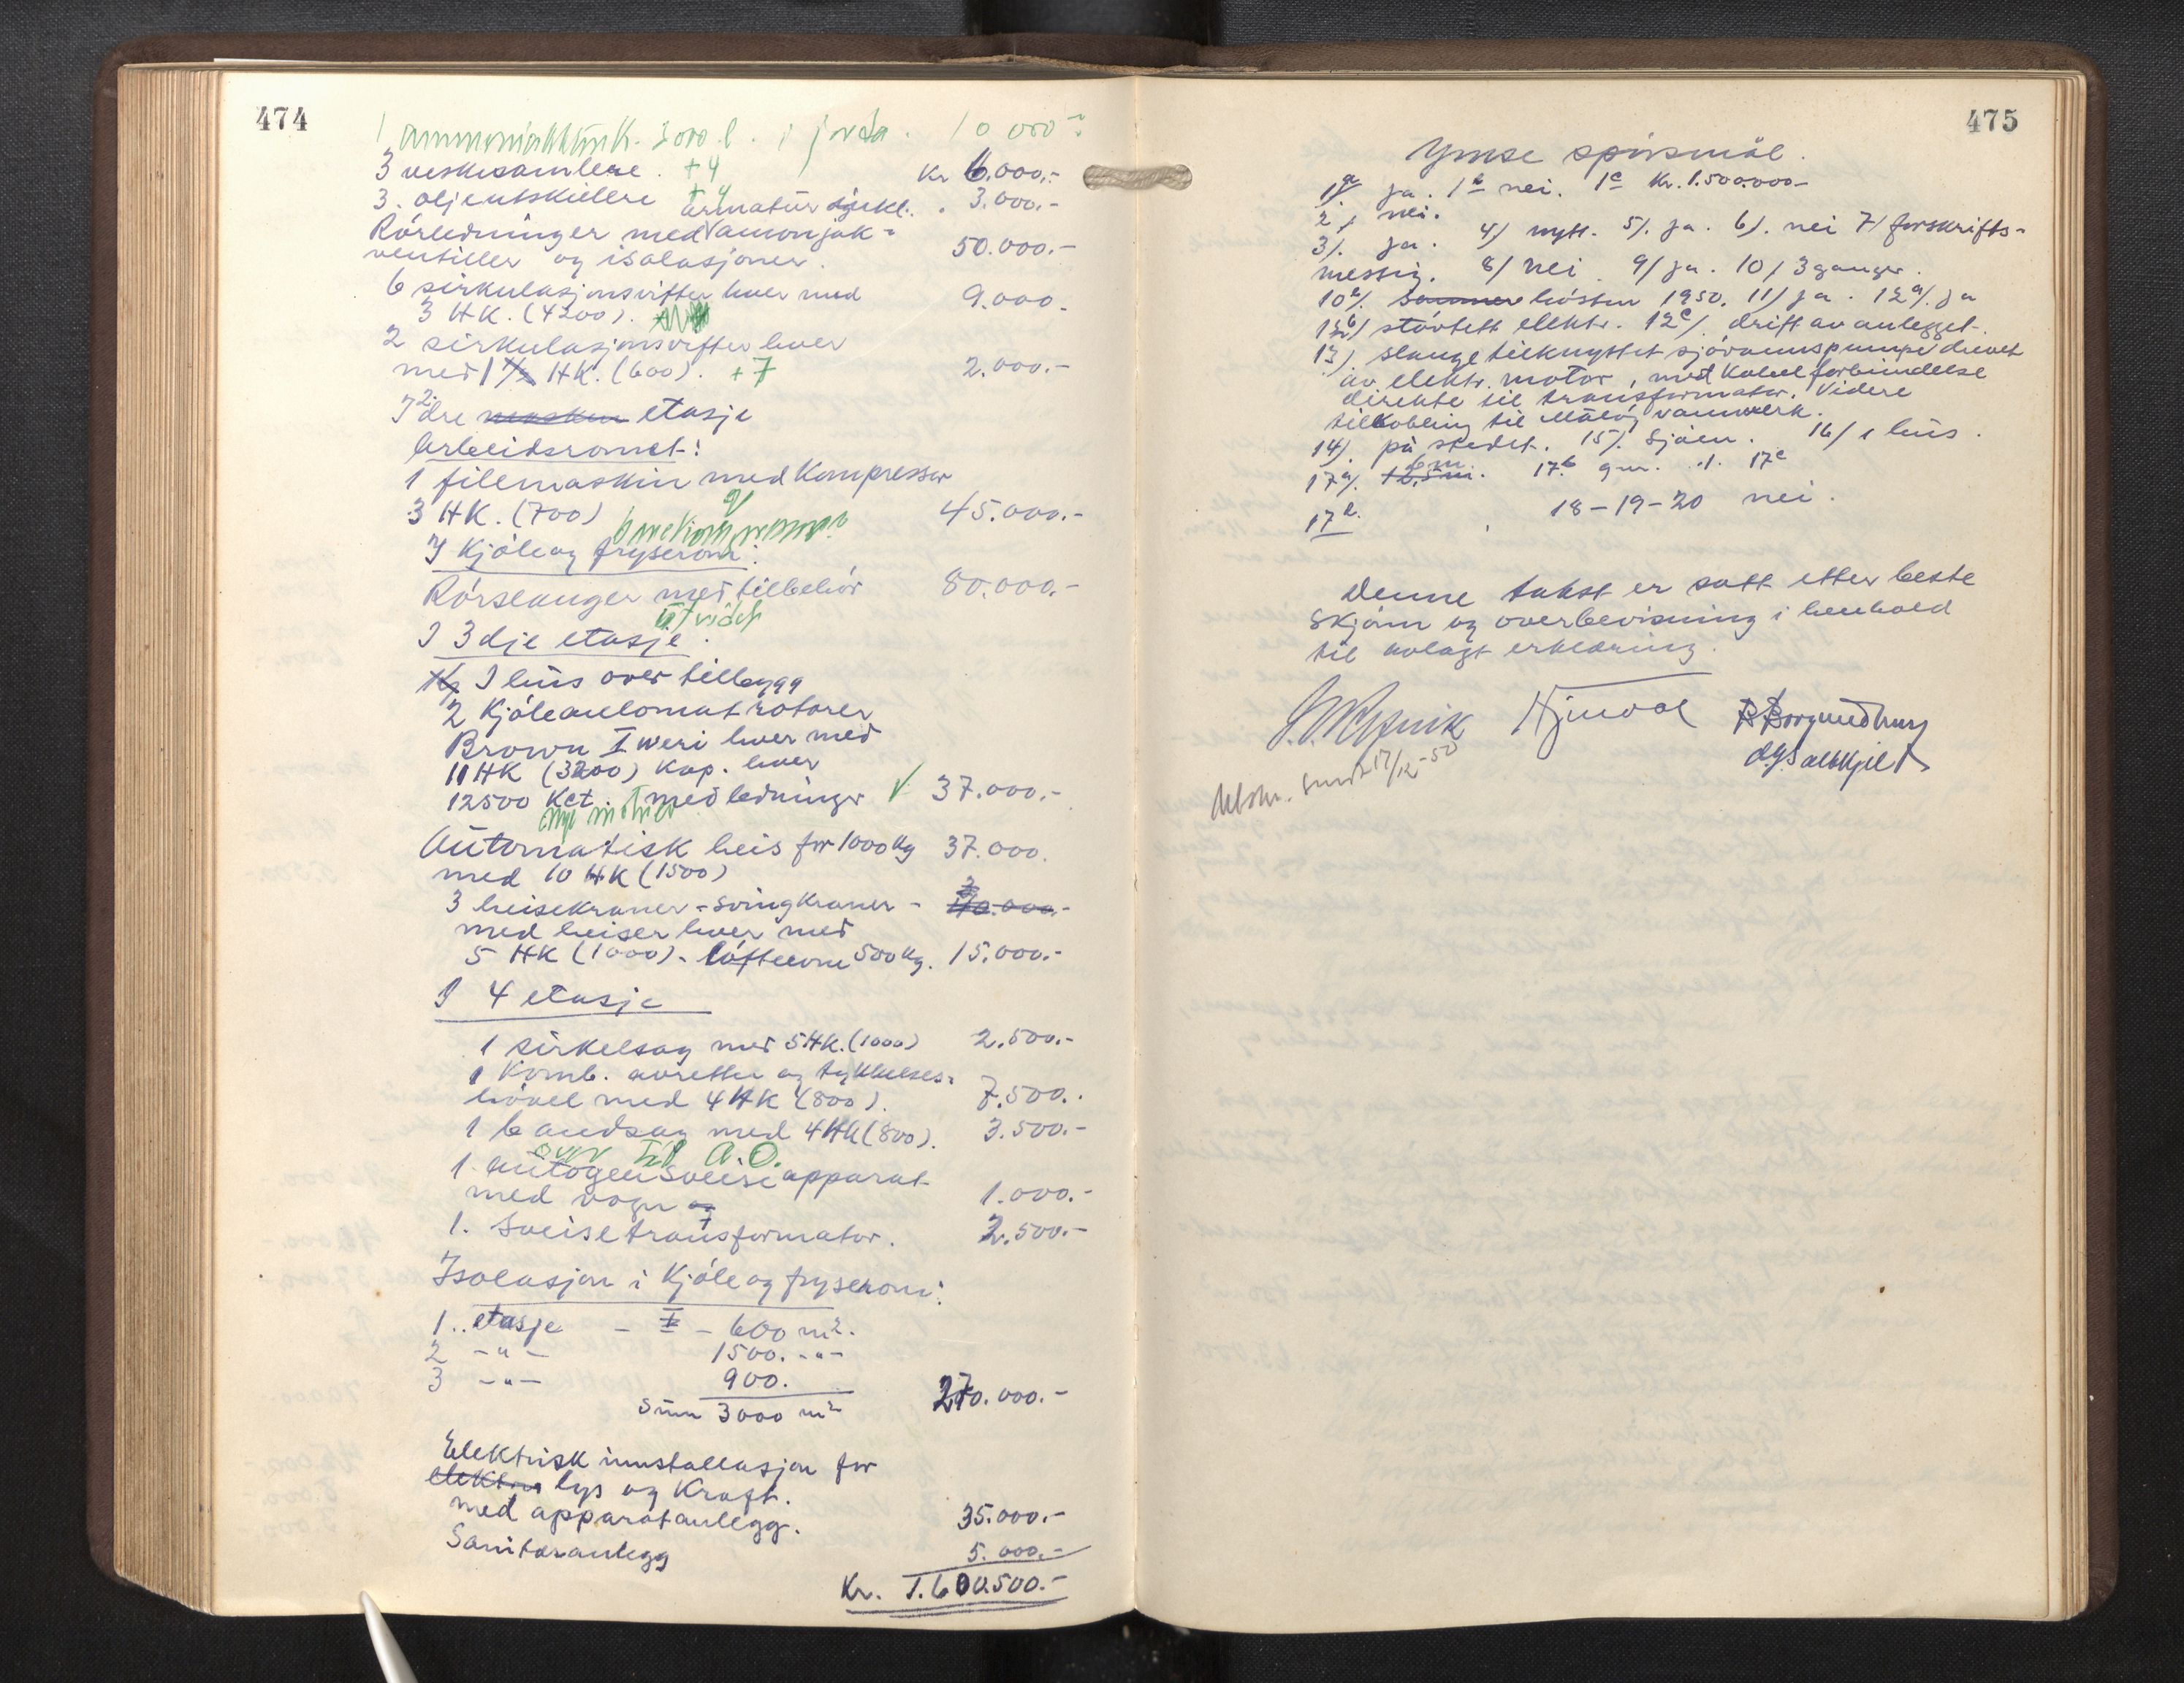 474
1 ammoniakktank 3000 l. i jorda. 10 000
3 veskesamlere. + 4 Kr 6.000.-
3. oljeutskillere + 4 armatur inkl. . 3.000.-
Rörledninger med amonjak-
ventiller og isolasjoner. 50.000.-
6 sirkulasjonsvifter hver med 9.000.
3 HK. (4200).
2 sirkulasjonsvifter hver
med 1 HK. (600). + 7 2.000.-
I 2dre masken etasje
Arbeidsromet:
1 filemaskin med Kompressor
3 HK. (700) 45.000.-
I Kjöle og fryserom:
Rörslanger med tilbehör 80.000.-
utvidet
I 3dje etasje.
I hus over tilbygg
2 Kjöleautomat rotorer
Brown Boveri hver med
11 HK (3200) Kap. hver
12500 Kct. med ledninger ✓ 37.000.-
nye motorer
Automatisk heis for 1000 kg 37.000.
med 10 HK (1500)
3 heisekraner - svingkraner - 40.000.-
med heiser hver med
5 HK (1000). löfteevne 500 kg. 15.000.-
I 4 etasje
1 sirkelsag med 5 HK. (1000) 2.500.-
1 Komb. avretter og tykkelses-
hövel med 4 HK (800). 7.500..
1 bandsag med 4 HK (800). 3.500.-
over til A.O.
1 autogen sveiseapparat
med vogn og 1.000.-
1. Sveisetransformator. 2.500.-
Isolasjon i Kjöle og fryserom:
1.. etasje - I - 600 m2.
2 -"- 1500. -"-
3 -"- 900.
Sum 3000 m2 270.000.-
Elektrisk innstallasjon for
elektris lys og Kraft.
med apparatanlegg. 35.000.-
Sanitæranlegg 5.000.-
Kr. 1.600.500.-
475
Ymse spörsmål.
1a/ ja. 1b nei. 1c Kr. 1.500.000-
2/ nei.
3/. ja. 4/ nytt. 5/. ja. 6/. nei 7/ forskrifts-
messig. 8/ nei. 9/ ja. 10/ 3 ganger.
10b/. sommer hösten 1950. 11/ ja. 12a/. ja
12b) stövtett elektr. 12c/. drift av anlegget.
13). slange tilknyttet sjövannspumpe drevet
av elektr. motor, med Kabel forbindelse
direkte til transformator. Videre
tilkobling til Måløy vannverk.
14). på stedet. 15/. Sjöen. 16/ 1 hus.
17a/. 12,5 m. 6 m 17b 9 m. ./. 17c
17d. 18-19-20 nei.
Denne takst er satt etter beste
Skjönn og overbevisning i henhold
til avlagt erklæring.